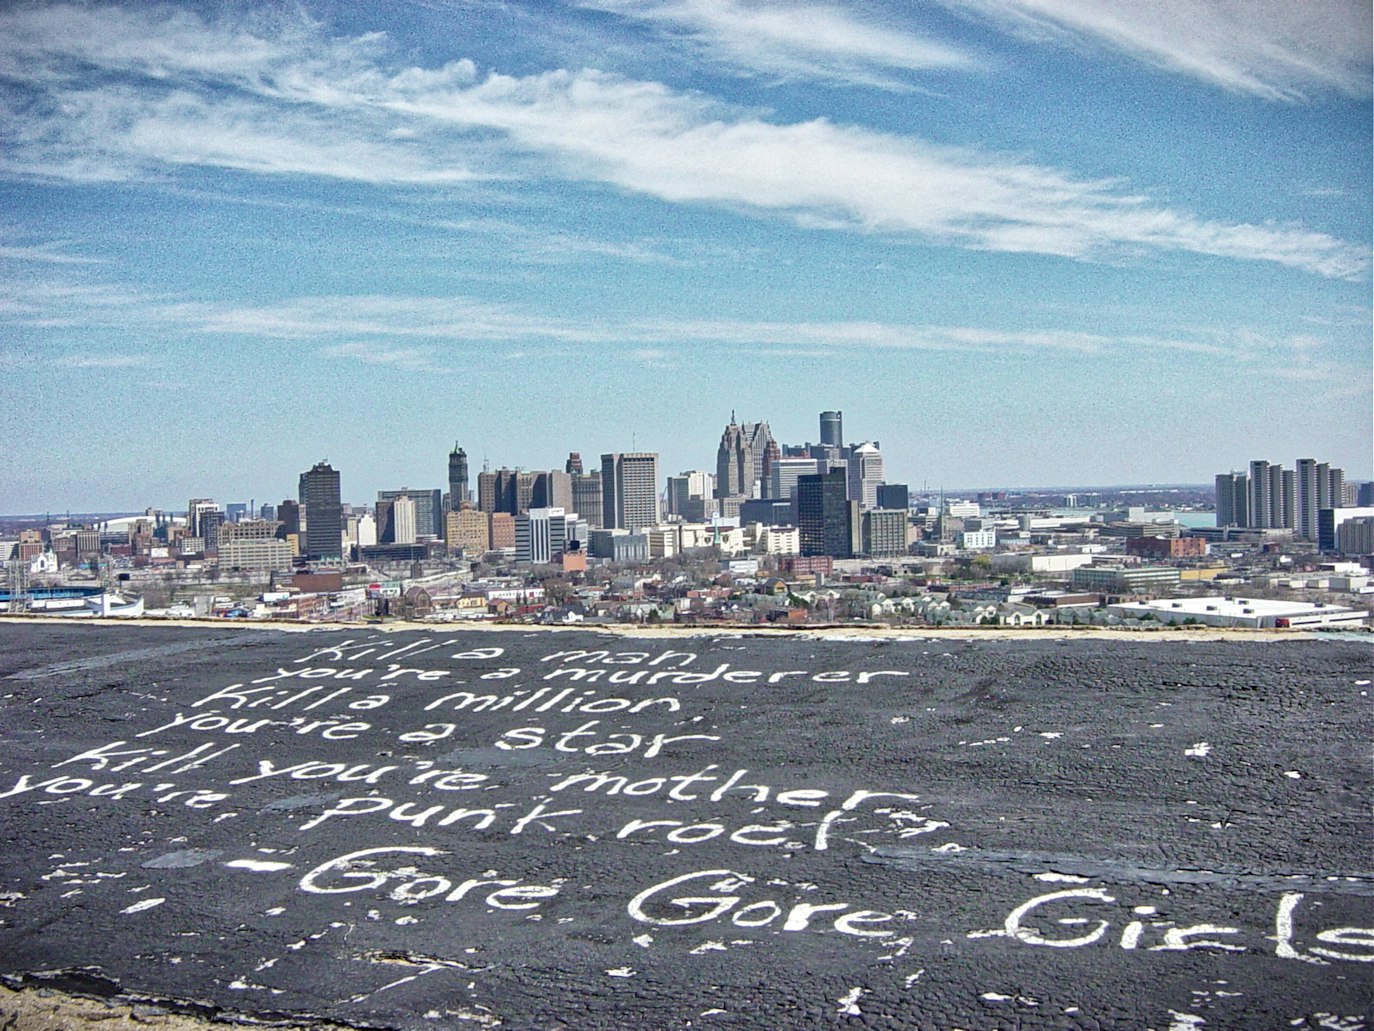 Kill a man
you're a murderer
Kill a million
you're a star
Kill you're mother
you're punk rock
-Gore Gore Girls